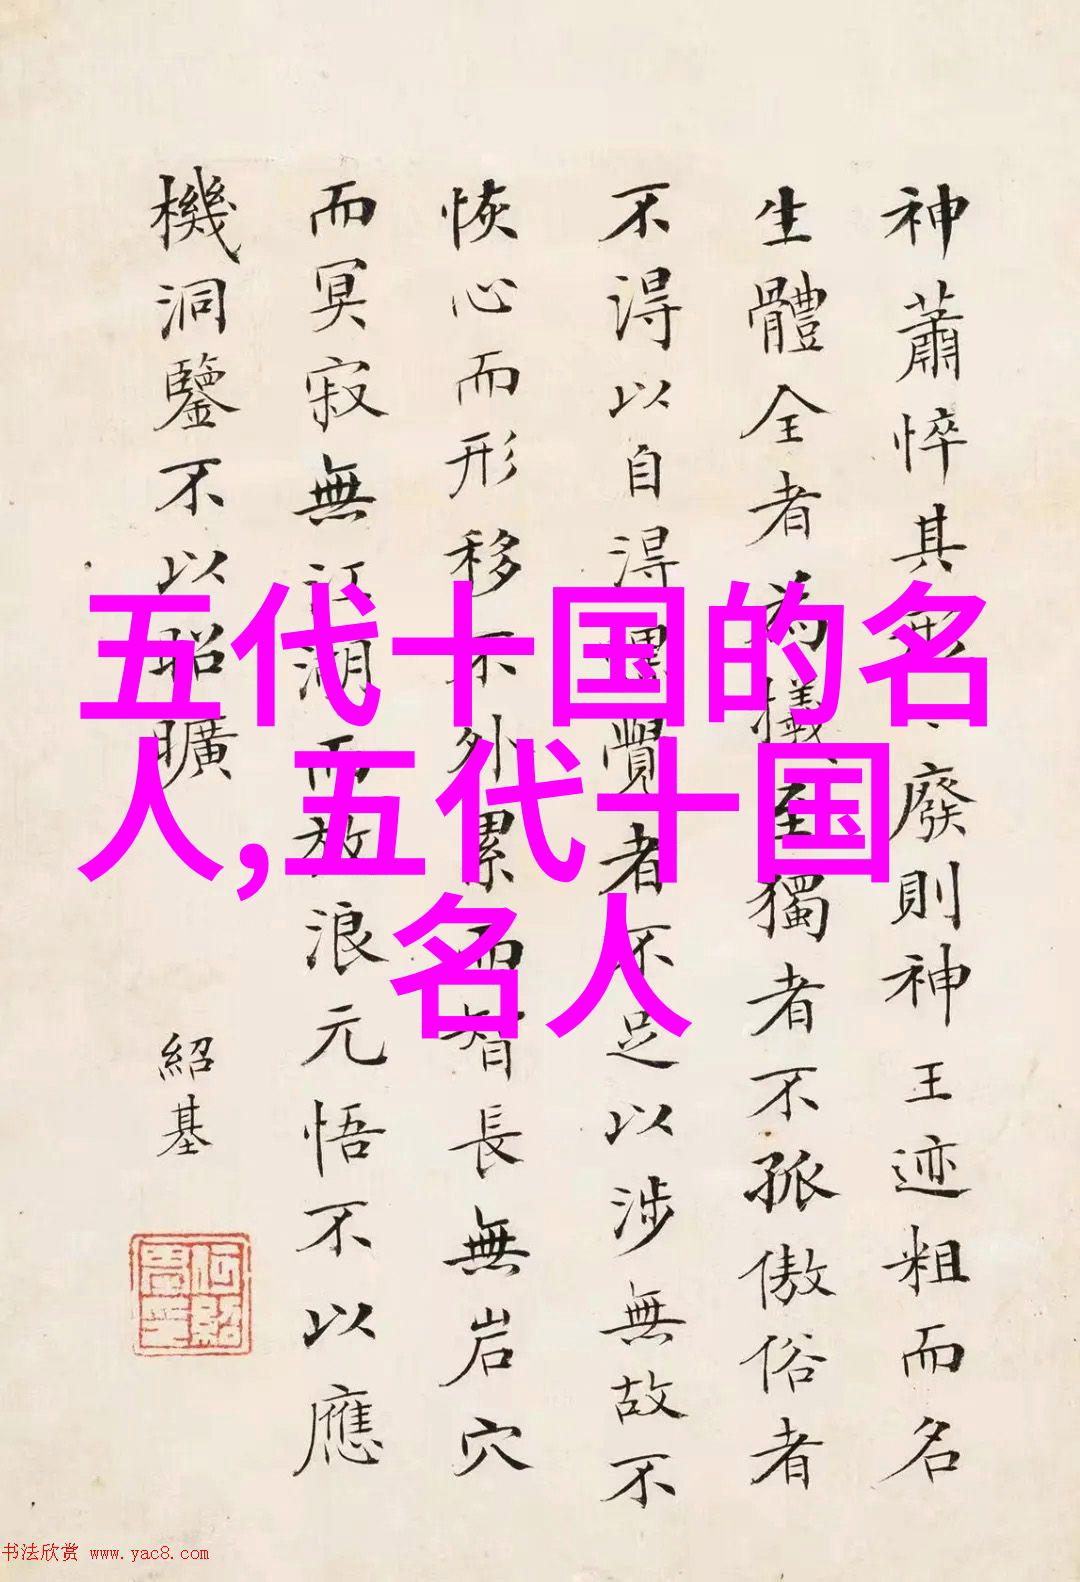 神蕭悴其
廢則神王迹粗而名
生體全者為犧至獨者不孤傲俗者
不得以自得得者不足以涉無故不
恢心而形移不外累而智長無岩穴
而冥寂無江湖而放浪元悟不以應
機洞鑒不以昭曠
紹基
五代十国的名
人,五代十国
名人
书法欣赏 www.yac8.com